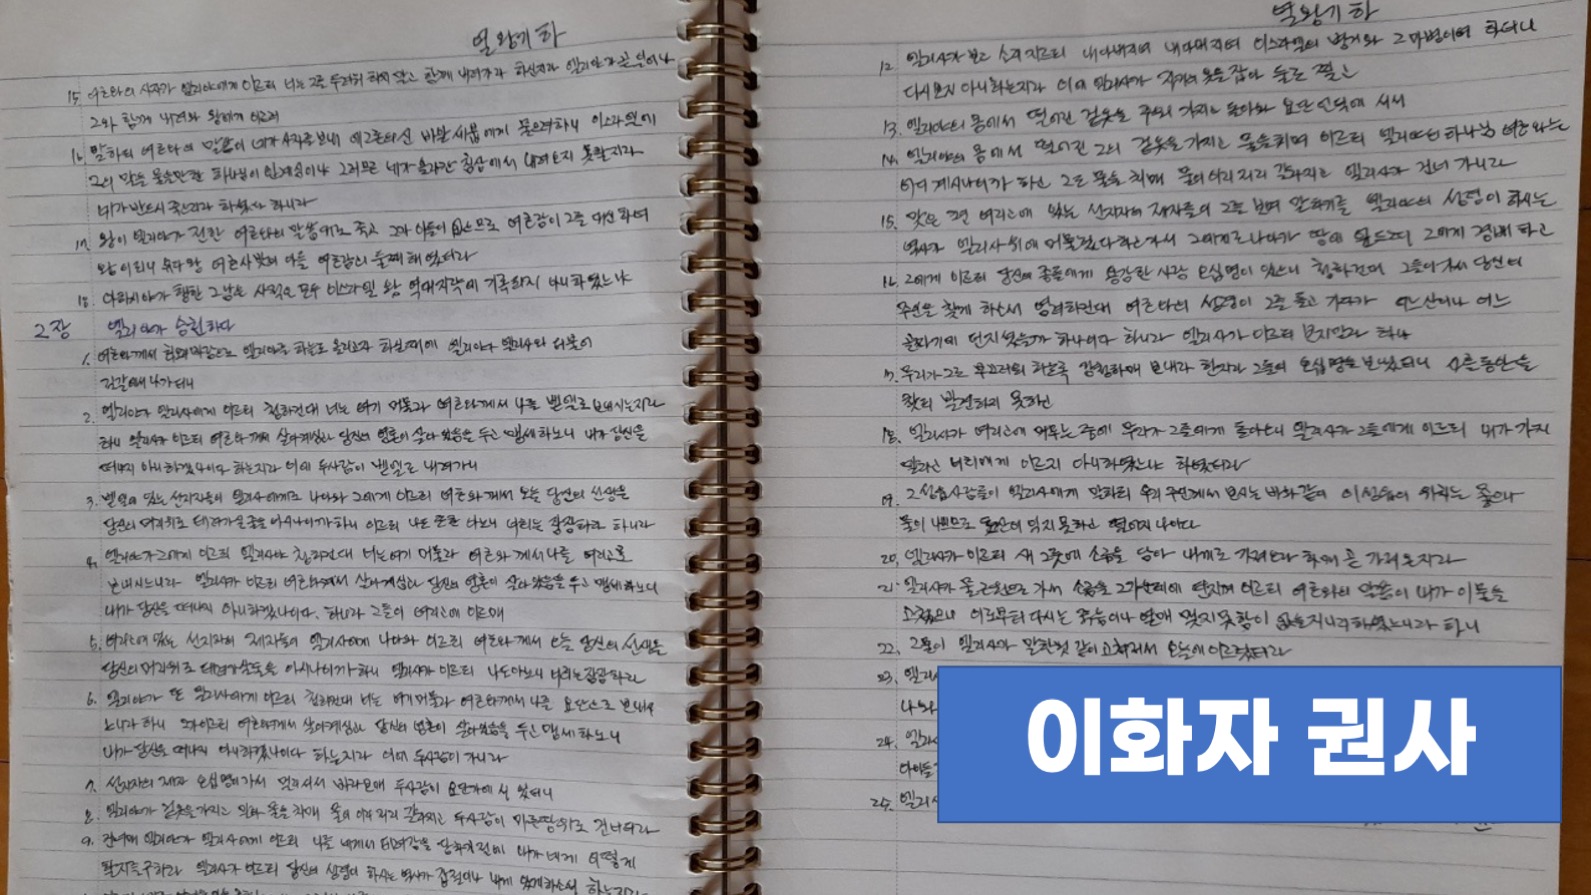 열왕기하
15. 여호와의 사자가 엘리야에게 이르되 너는 그를 두려워 하지 말고 함께 내려가라 하신지라 엘리야가 곧 일어나
그와 함께 내려와 왕에게 이르러
16. 말하되 여호와의 말씀이 네가 사자를 보내 에그론의 신 바알세붑에게 물으려하니 이스라엘에
그의 말을 물을만한 하나님이 안계심이냐 그러므로 네가 올라간 침상에서 내려오지 못할지라
네가 반드시 죽으리라 하였다 하니라
17. 왕이 엘리야가 전한 여호와의 말씀대로 죽고 그가 아들이 없으므로 여호람이 그를 대신하여
왕이 되니 유다 왕 여호사밧의 아들 여호람의 둘째 해였더라
18. 아하시야가 행한 그 남은 사적은 모두 이스라엘 왕 역대지략에 기록되지 아니하였느냐
2장 엘리야가 승천하다
1. 여호와께서 회오리바람으로 엘리야를 하늘로 올리고자 하실때에 엘리야가 엘리사와 더불어
길갈에서 나가더니
2. 엘리야가 엘리사에게 이르되 청하건대 너는 여기 머물라 여호와께서 나를 벧엘로 보내시느니라
하니 엘리사가 이르되 여호와께서 살아계심과 당신의 영혼이 살아 있음을 두고 맹세하노니 내가 당신을
떠나지 아니하겠나이다 하는지라 이에 두사람이 벧엘로 내려가니
3. 벧엘에 있는 선지자들의 엘리사에게로 나아와 그에게 이르되 여호와께서 오늘 당신의 선생을
당신의 머리위로 데려가실줄을 아시나이까 하니 이르되 나도 또한 아노니 너희는 잠잠하라 하니라
4. 엘리야가 그에게 이르되 엘리사야 청하건대 너는 여기 머물라 여호와께서 나를 여리고로
보내시느니라 엘리사가 이르되 여호와께서 살아계심과 당신의 영혼이 살아있음을 두고 맹세하노니
내가 당신을 떠나지 아니하겠나이다. 하니라 그들이 여리고에 이르매
5. 여리고에 있는 선지자의 제자들이 엘리사에게 나아와 이르되 여호와께서 오늘 당신의 선생을
당신의 머리위로 데려가실줄을 아시나이까 하니 엘리사가 이르되 나도 아노니 너희는 잠잠하라
6. 엘리야가 또 엘리사에게 이르되 청하건대 너는 여기 머물라 여호와께서 나를 요단으로 보내시
느니라 하니 그가 이르되 여호와께서 살아계심과 당신의 영혼이 살아있음을 두고 맹세하노니
내가 당신을 떠나지 아니하겠나이다 하는지라 이에 두사람이 가니라
7. 선지자의 제자 오십명이 가서 멀리서서 바라보매 두사람이 요단가에 서 있더니
8. 엘리야가 겉옷을 가지고 말아 물을 치매 물이 이리 저리 갈라지고 두사람이 마른땅위로 건너더라
9. 건너매 엘리야가 엘리사에게 이르되 나를 네게서 데려감을 당하기 전에 내가 네게 어떻게
할지를 구하라 엘리사가 이르되 당신의 성령이 하시는 역사가 갑절이나 내게 있게 하소서 하는지라
열왕기하
12. 엘리사가 보고 소리 지르되 내 아버지여 내 아버지여 이스라엘의 병거와 그 마병이여 하더니
다시 보지 아니하는지라 이에 엘리사가 자기의 옷을 잡아 둘로 찢고
13. 엘리야의 몸에서 떨어진 겉옷을 주워 가지고 돌아와 요단 언덕에 서서
14. 엘리야의 몸에서 떨어진 그의 겉옷을 가지고 물을 치며 이르되 엘리야의 하나님 여호와는
어디 계시나이까 하고 그도 물을 치매 물이 이리 저리 갈라지고 엘리사가 건너 가니라
15. 맞은 편 여리고에 있는 선지자의 제자들이 그를 보며 말하기를 엘리야의 성령이 하시는
역사가 엘리사 위에 머물렀다 하고 가서 그에게로 나아가 땅에 엎드려 그에게 경배하고
16. 그에게 이르되 당신의 종들에게 용감한 사람 오십명이 있으니 청하건대 그들이 가서 당신의
주인을 찾게 하소서 염려하건대 여호와의 성령이 그를 들고 가다가 어느 산이나 어느
골짜기에 던지셨을까 하나이다 하니라 엘리사가 이르되 보내지 말라 하나
17. 무리가 그로 부끄러워 하도록 강청하매 보내라 한지라 그들이 오십 명을 보냈더니 사흘동안을
찾되 발견하지 못하고
18. 엘리사가 여리고에 머무는 중에 무리가 그들에게 돌아오니 엘리사가 그들에게 이르되 내가 가지
말라고 너희에게 이르지 아니하였느냐 하였더라
19. 그 성읍사람들이 엘리사에게 말하되 우리 주인께서 보시는 바와 같이 이 성읍의 위치는 좋으나
물이 나쁘므로 토산이 익지 못하고 떨어지나이다
20. 엘리사가 이르되 새 그릇에 소금을 담아 내게로 가져오라 하매 곧 가져온지라
21. 엘리사가 물 근원으로 가서 소금을 그 가운데에 던지며 이르되 여호와의 말씀이 내가 이 물을
고쳤으니 이로부터 다시는 죽음이나 열매 맺지 못함이 없을지니라 하셨느니라 하니
22. 그 물이 엘리사가 말한것 같이 고쳐져서 오늘에 이르렀더라
23. 엘리사
24. 엘리사
아이들
25. 엘리사
이화자 권사